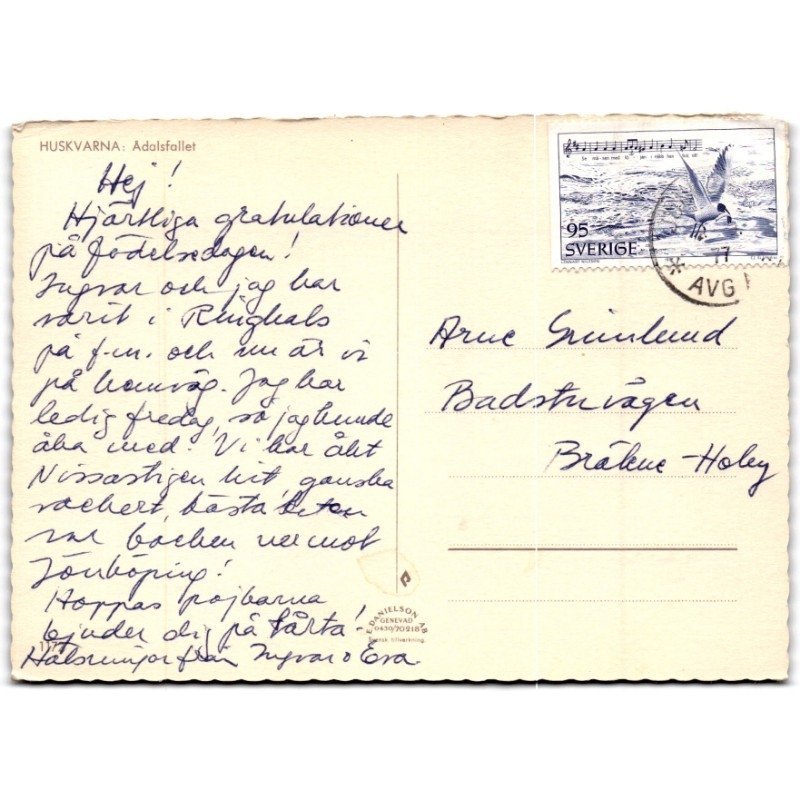 HUSKVARNA: Ådalsfallet
Hej!
Hjärtliga gratulationer
på födelsedagen!
Ingvar och jag har
varit i Ringhals
på f.m. och nu är vi
på hemväg. Jag har
ledig fredag, så jag kunde
åka med. Vi har åkt
Nissastigen hit, ganska
vackert, bästa biten
var backen ner mot
Jönköping!
Hoppas pojkarna
bjuder dig på tårta!
Hälsningar från Ingvar o Eva
95
SVERIGE
AVG
77
Arne Grönlund
Badstuvägen
Bräkne-Hoby
E. DANIELSON AB
GENEVAD
0430/70218
Svensk tillverkning